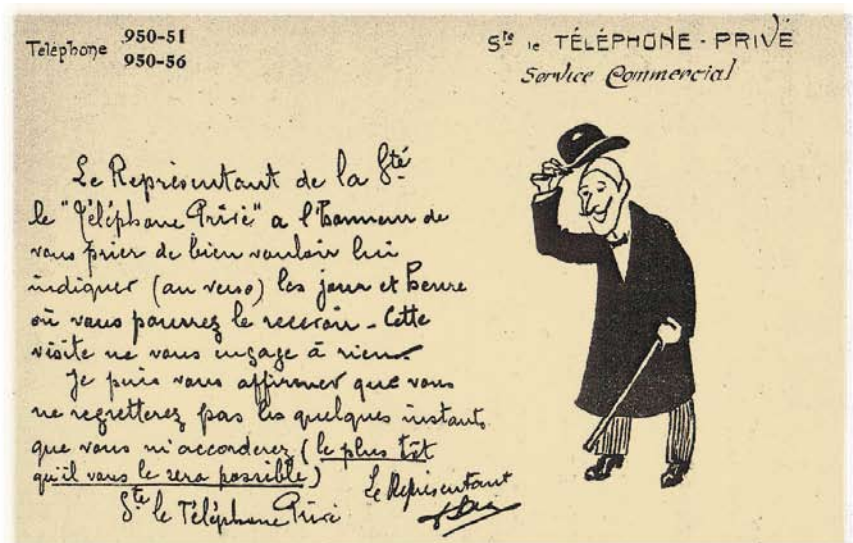 Téléphone 950-51
950-56
Sté le TÉLÉPHONE-PRIVÉ
Service Commercial
Le Représentant de la Sté
le "Téléphone Privé" a l'honneur de
vous prier de bien vouloir lui
indiquer (au verso) les jour et heure
où vous pourrez le recevoir - Cette
visite ne vous engage à rien.
Je puis vous affirmer que vous
ne regretterez pas les quelques instants
que vous m'accorderez (le plus tôt
qu'il vous le sera possible)
Le Représentant
Sté le Téléphone Privé